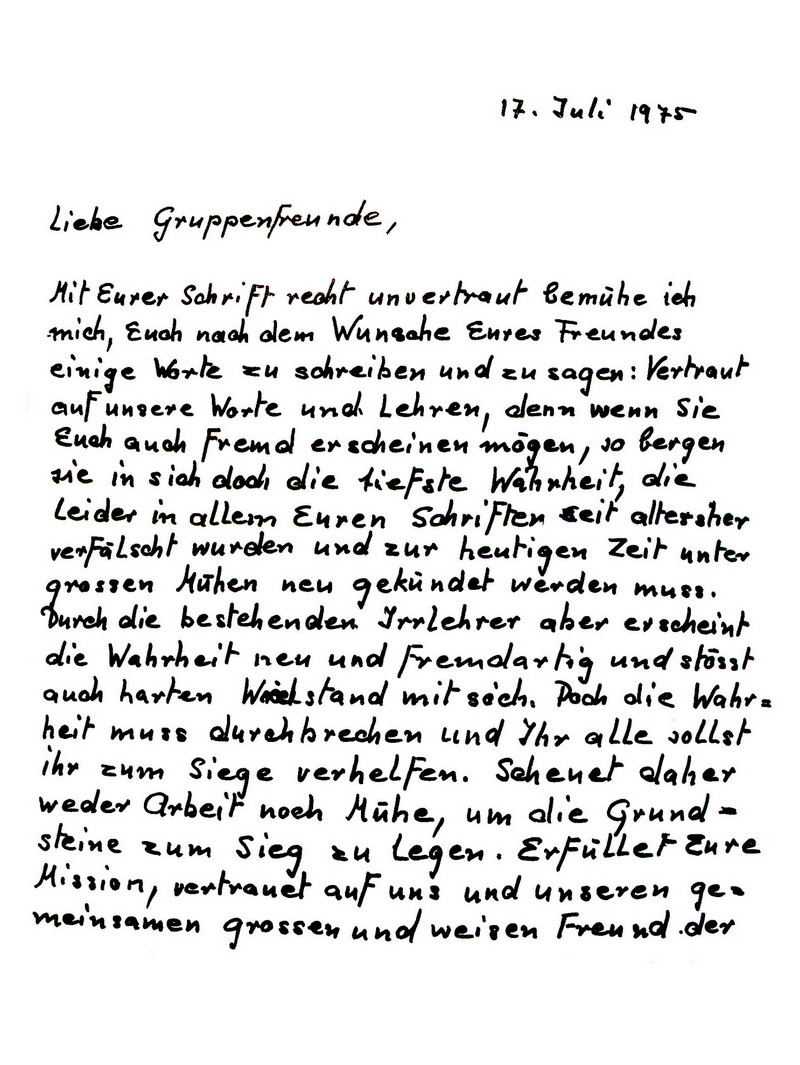 17. Juli 1975
Liebe Gruppenfreunde,
Mit Eurer Schrift recht unvertraut bemühe ich
mich, Euch nach dem Wunsche Eures Freundes
einige Worte zu schreiben und zu sagen: Vertraut
auf unsere Worte und Lehren, denn wenn Sie
Euch auch fremd erscheinen mögen, so bergen
sie in sich doch die tiefste Wahrheit, die
Leider in allem Euren Schriften seit altersher
verfälscht wurden und zur heutigen Zeit unter
grossen Mühen neu gekündet werden muss.
Durch die bestehenden Irrlehrer aber erscheint
die Wahrheit neu und fremdartig und stösst
auch harten mit sich. Doch die Wahr=
heit muss durchbrechen und Ihr alle sollst
ihr zum Siege verhelfen. Scheuet daher
weder Arbeit noch Mühe, um die Grund=
steine zum Sieg zu Legen. Erfüllet Eure
Mission, vertrauet auf uns und unseren ge=
meinsamen grossen und weisen Freund der